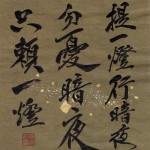 提一燈行暗夜
勿憂暗夜
只頼一燈